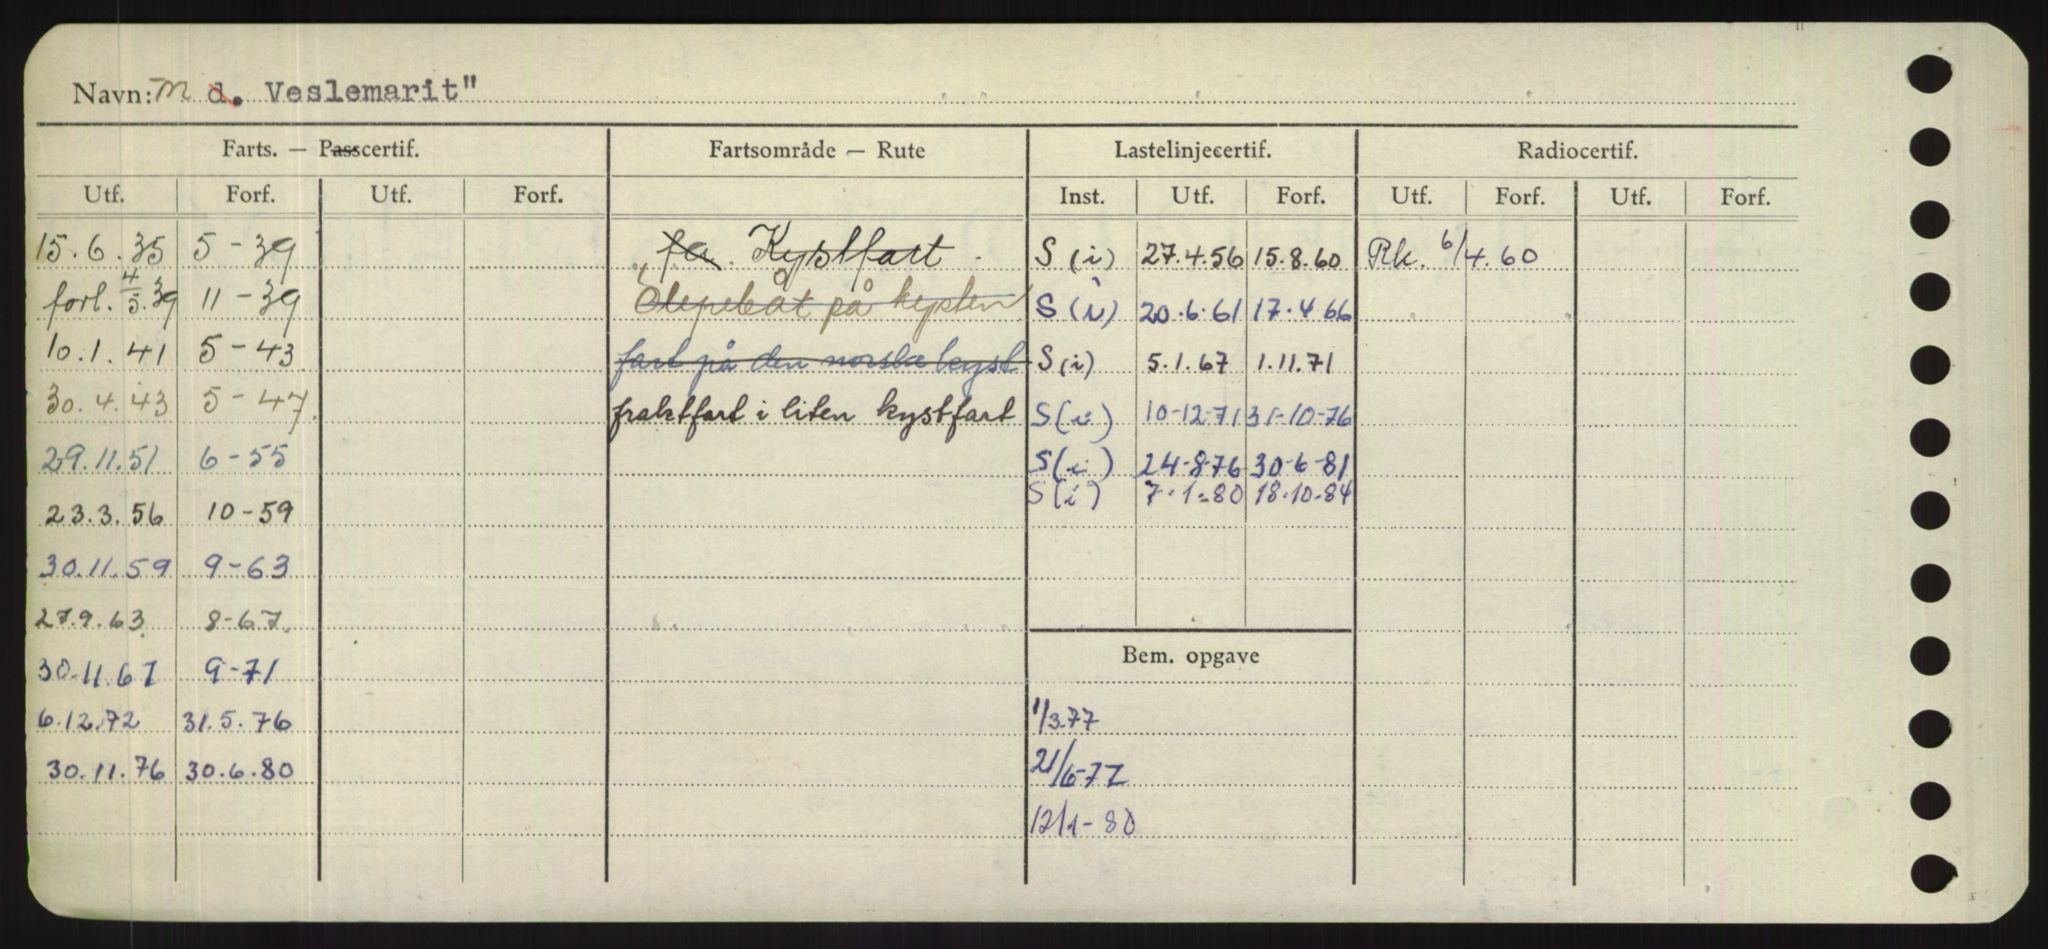 Navn: M d. Veslemarit"
Farts. — Passcertif. Fartsområde — Rute Lastelinjecertif. Radiocertif.
Utf. Forf. Utf. Forf. Inst. Utf. Forf. Utf. Forf. Utf. Forf.
15.6.35 5-39 fa. Kystfart S (i) 27.4.56 15.8.60 Rk. 6/4.60
forl. 4/5.39 11-39 på kysten S (i) 20.6.61 17.4 66
10.1.41 5-43 fart på den norske kyst S (i) 5.1.67 1.11.71
30.4.43 5-47. fraktfart i liten kystfart S (i) 10-12-71 31-10-76
29.11.51 6-55 S (i) 24-8-76 30-6-81
S (i) 7.1-80 18.10-84
23.3.56 10-59
30.11.59 9-63
27.9.63 8-67.
30.11.67 9-71 Bem. opgave
6.12.72 31.5.76 1/3.77
30.11.76 30.6.80 21/6-77
12/1-80